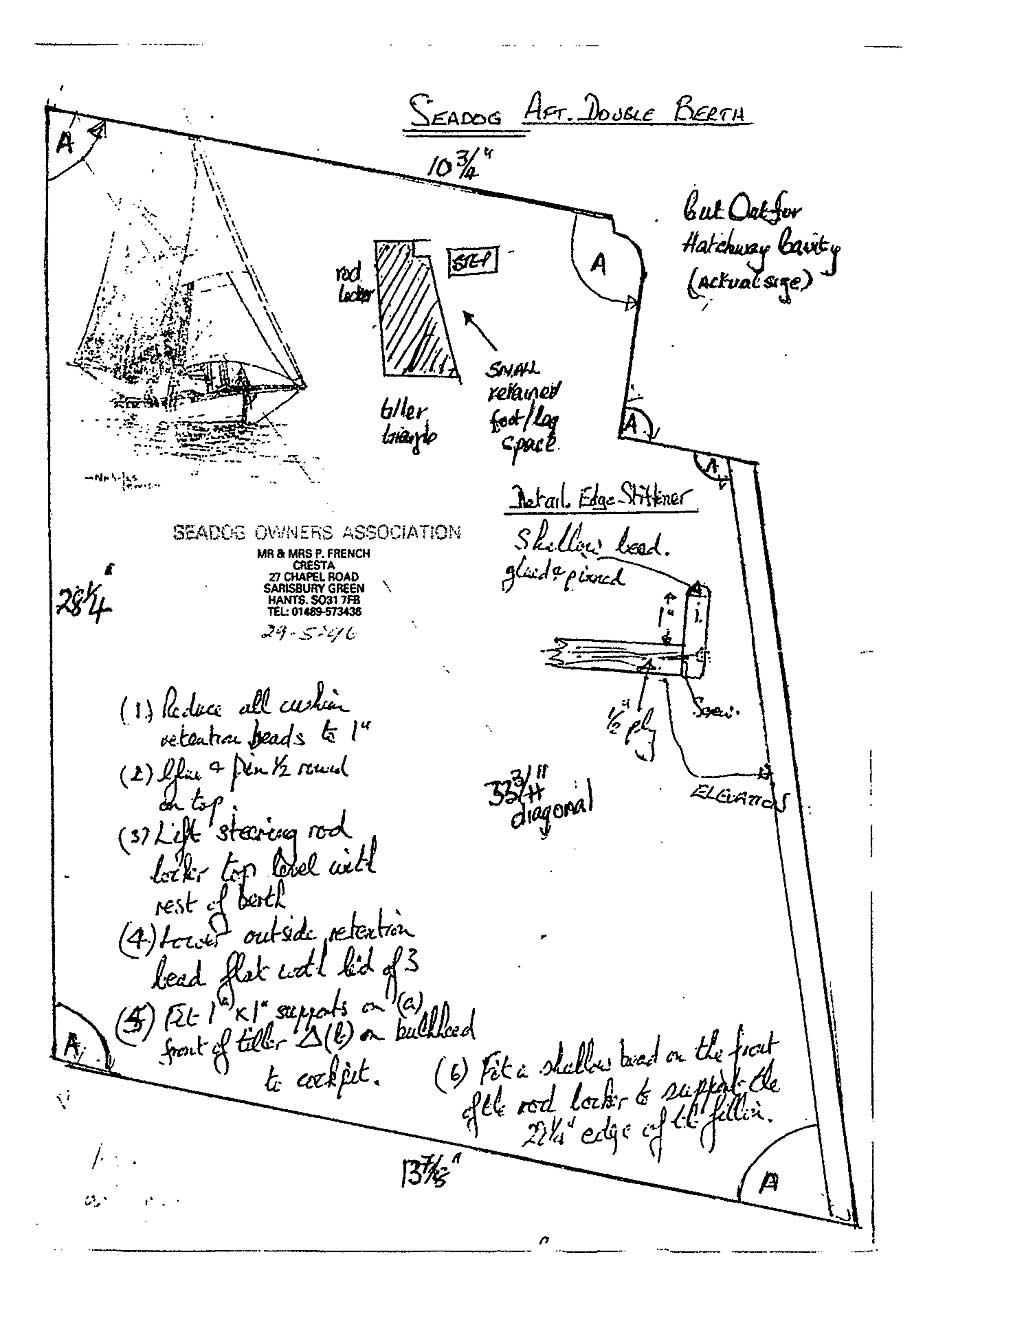 SEADOG AFT. DOUBLE BERTH
A
10 3/4"
Cut Out for
Hatchway Cavity
(actual size)
A
rod
locker
STEP
SMALL
retained
foot/leg
space
tiller
triangle
A
A
Detail. Edge Stiffener
Shallow bead.
glued & pinned
1"
1/2" ply
Screw.
ELEVATION
SEADOG OWNERS ASSOCIATION
MR & MRS P. FRENCH
CRESTA
27 CHAPEL ROAD
SARISBURY GREEN
HANTS. SO31 7FB
TEL: 01489-573436
28 1/4"
33 3/4"
diagonal
(1.) Reduce all cushion
retention beads to 1"
(2) Glue & pin 1/2 round
on top.
(3) Lift steering rod
locker top level with
rest of berth
(4) Lower outside retention
bead flat with lid of 3
(5) Fit 1" x 1" supports on (a)
front of tiller Δ (b) on bulkhead
to cockpit.
(6) Fit a shallow bead on the front
of the rod locker to support the
edge of the fillin.
A
13 7/8"
A